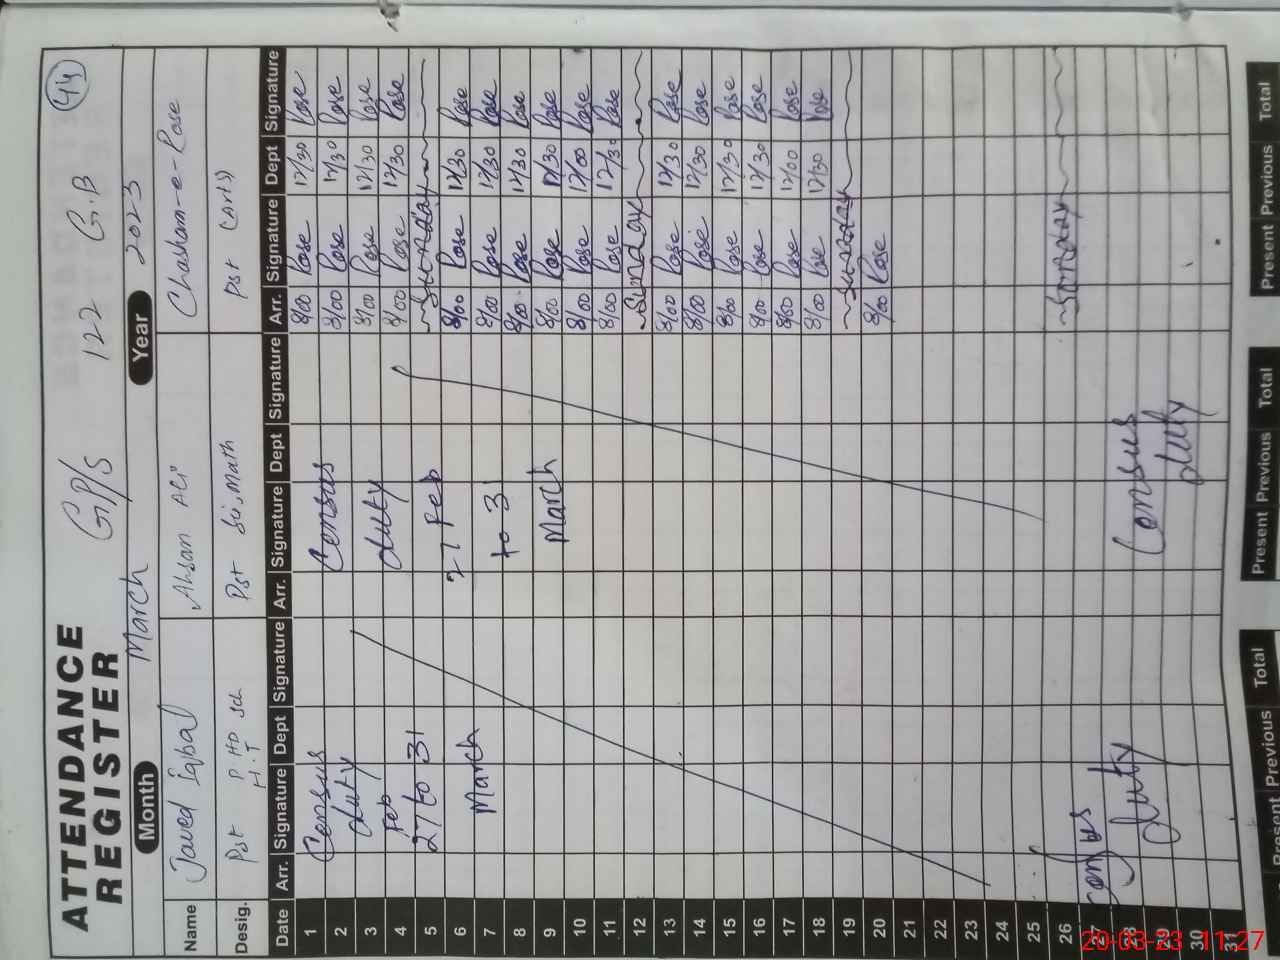 44
ATTENDANCE REGISTER G.P/S 122 G.B
Month March Year 2023
Name Javed Iqbal Ahsan Ali Chasham-e-Rose
Desig. Pst P HD Sch Pst Sci, Math Pst (Arts)
H.T
Date Arr. Signature Dept Signature Arr. Signature Dept Signature Arr. Signature Dept Signature
1 Census Census 8/00 Rose 12/30 Rose
2 duty 8/00 Rose 12/30 Rose
3 Feb duty 8/00 Rose 12/30 Rose
4 27 to 31 8/00 Rose 12/30 Rose
5 27 Feb Sunday
6 March 8/00 Rose 12/30 Rose
7 to 31 8/00 Rose 12/30 Rose
8 8/00 Rose 12/30 Rose
9 March 8/00 Rose 12/30 Rose
10 8/00 Rose 12/00 Rose
11 8/00 Rose 12/30 Rose
12 Sunday
13 8/00 Rose 12/30 Rose
14 8/00 Rose 12/30 Rose
15 8/00 Rose 12/30 Rose
16 8/00 Rose 12/30 Rose
17 8/00 Rose 12/00 Rose
18 8/00 Rose 12/30 Rose
19 Sunday
20 8/00 Rose
21
22
23
24
25
26 Sunday
27 Census
28 duty Census
29 duty
30
31
Present Previous Total Present Previous Total Present Previous Total
20-03-23 11:27